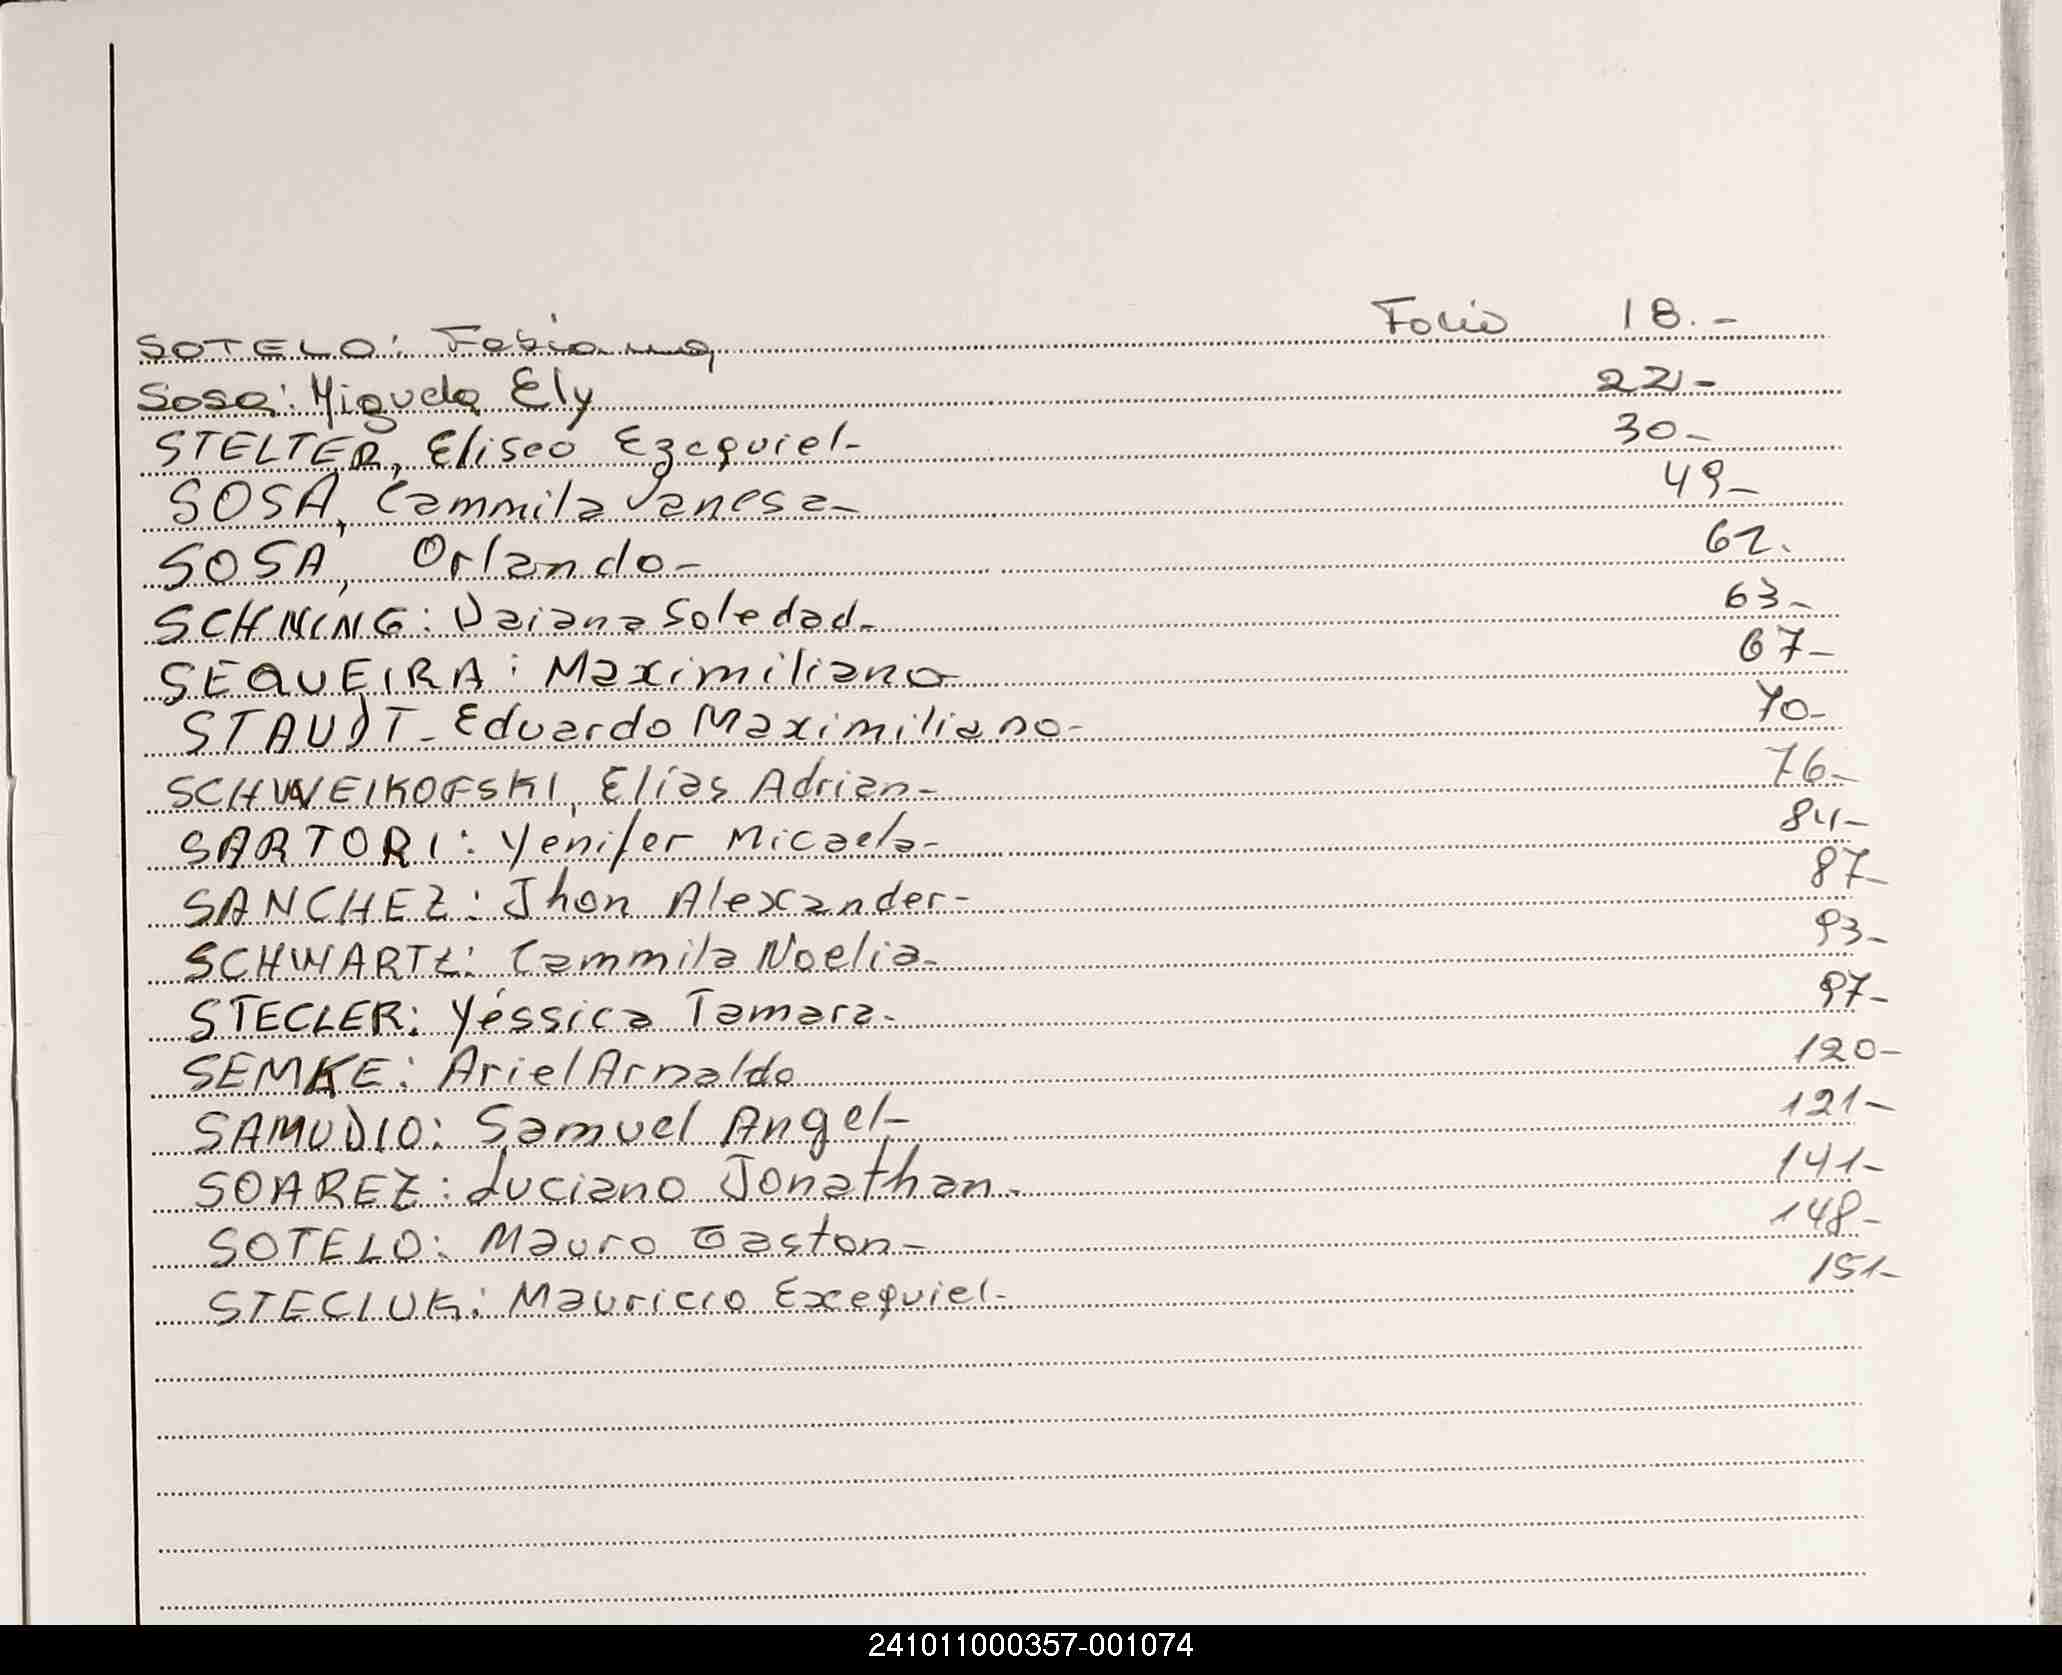 SOTELO: Fabiana Folio 18.-
Sosa: Miguela Ely 22-
STELTER, Eliseo Ezequiel- 30-
SOSA, Cammila Vanesa- 49-
SOSA, Orlando- 62.
SCHNING: Daiana Soledad- 63-
SEQUEIRA: Maximiliano 67-
STAUDT- Eduardo Maximiliano- 70-
SCHWEIKOFSKI, Elías Adrian- 76-
SARTORI: Yenifer Micaela- 84-
SANCHEZ: Jhon Alexander- 87-
SCHWARTZ: Cammila Noelia- 93-
STECLER: Yéssica Tamara- 97-
SEMKE: Ariel Arnaldo 120-
SAMUDIO: Samuel Angel- 121-
SOAREZ: Luciano Jonathan- 141-
SOTELO: Mauro Gaston- 148-
STECIUK: Mauricio Exequiel- 151-
241011000357-001074